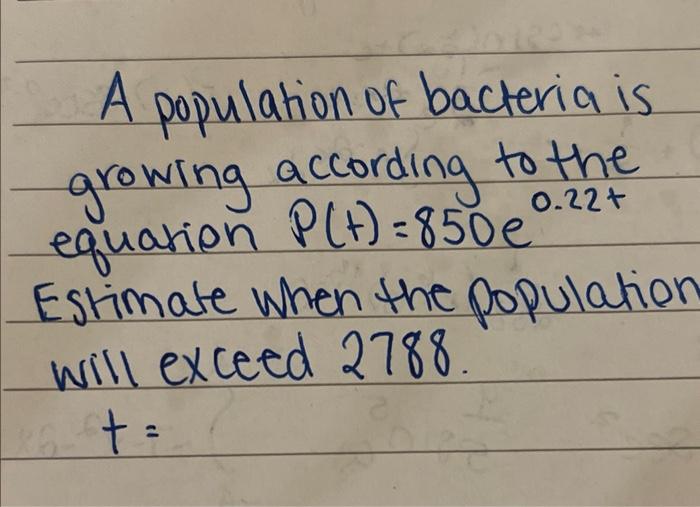 A population of bacteria is
growing according to the
equation P(t)=850e^0.22t
Estimate when the population
will exceed 2788.
t =